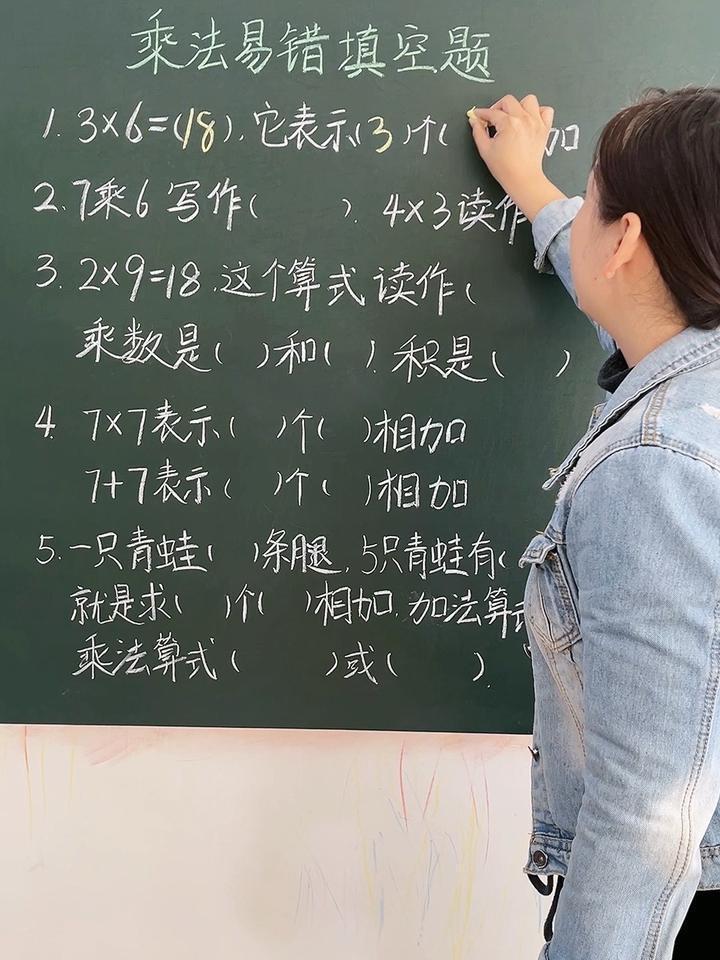 乘法易错填空题
1. 3×6=(18),它表示(3)个( 加
2. 7乘6写作( ), 4×3读作
3. 2×9=18,这个算式读作(
乘数是( )和( ),积是( )
4. 7×7表示( )个( )相加
7+7表示( )个( )相加
5. 一只青蛙( )条腿,5只青蛙有(
就是求( )个( )相加,加法算式
乘法算式( )或( ).